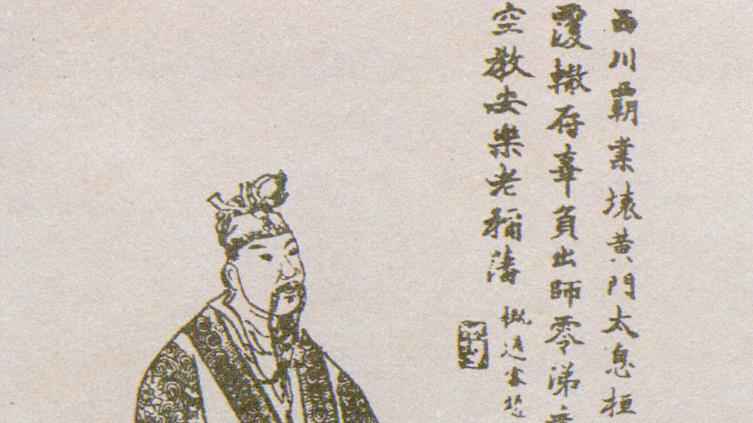 西川霸業壞黃門太息桓
覆轍存辜負出師零涕
空教安樂老稱藩